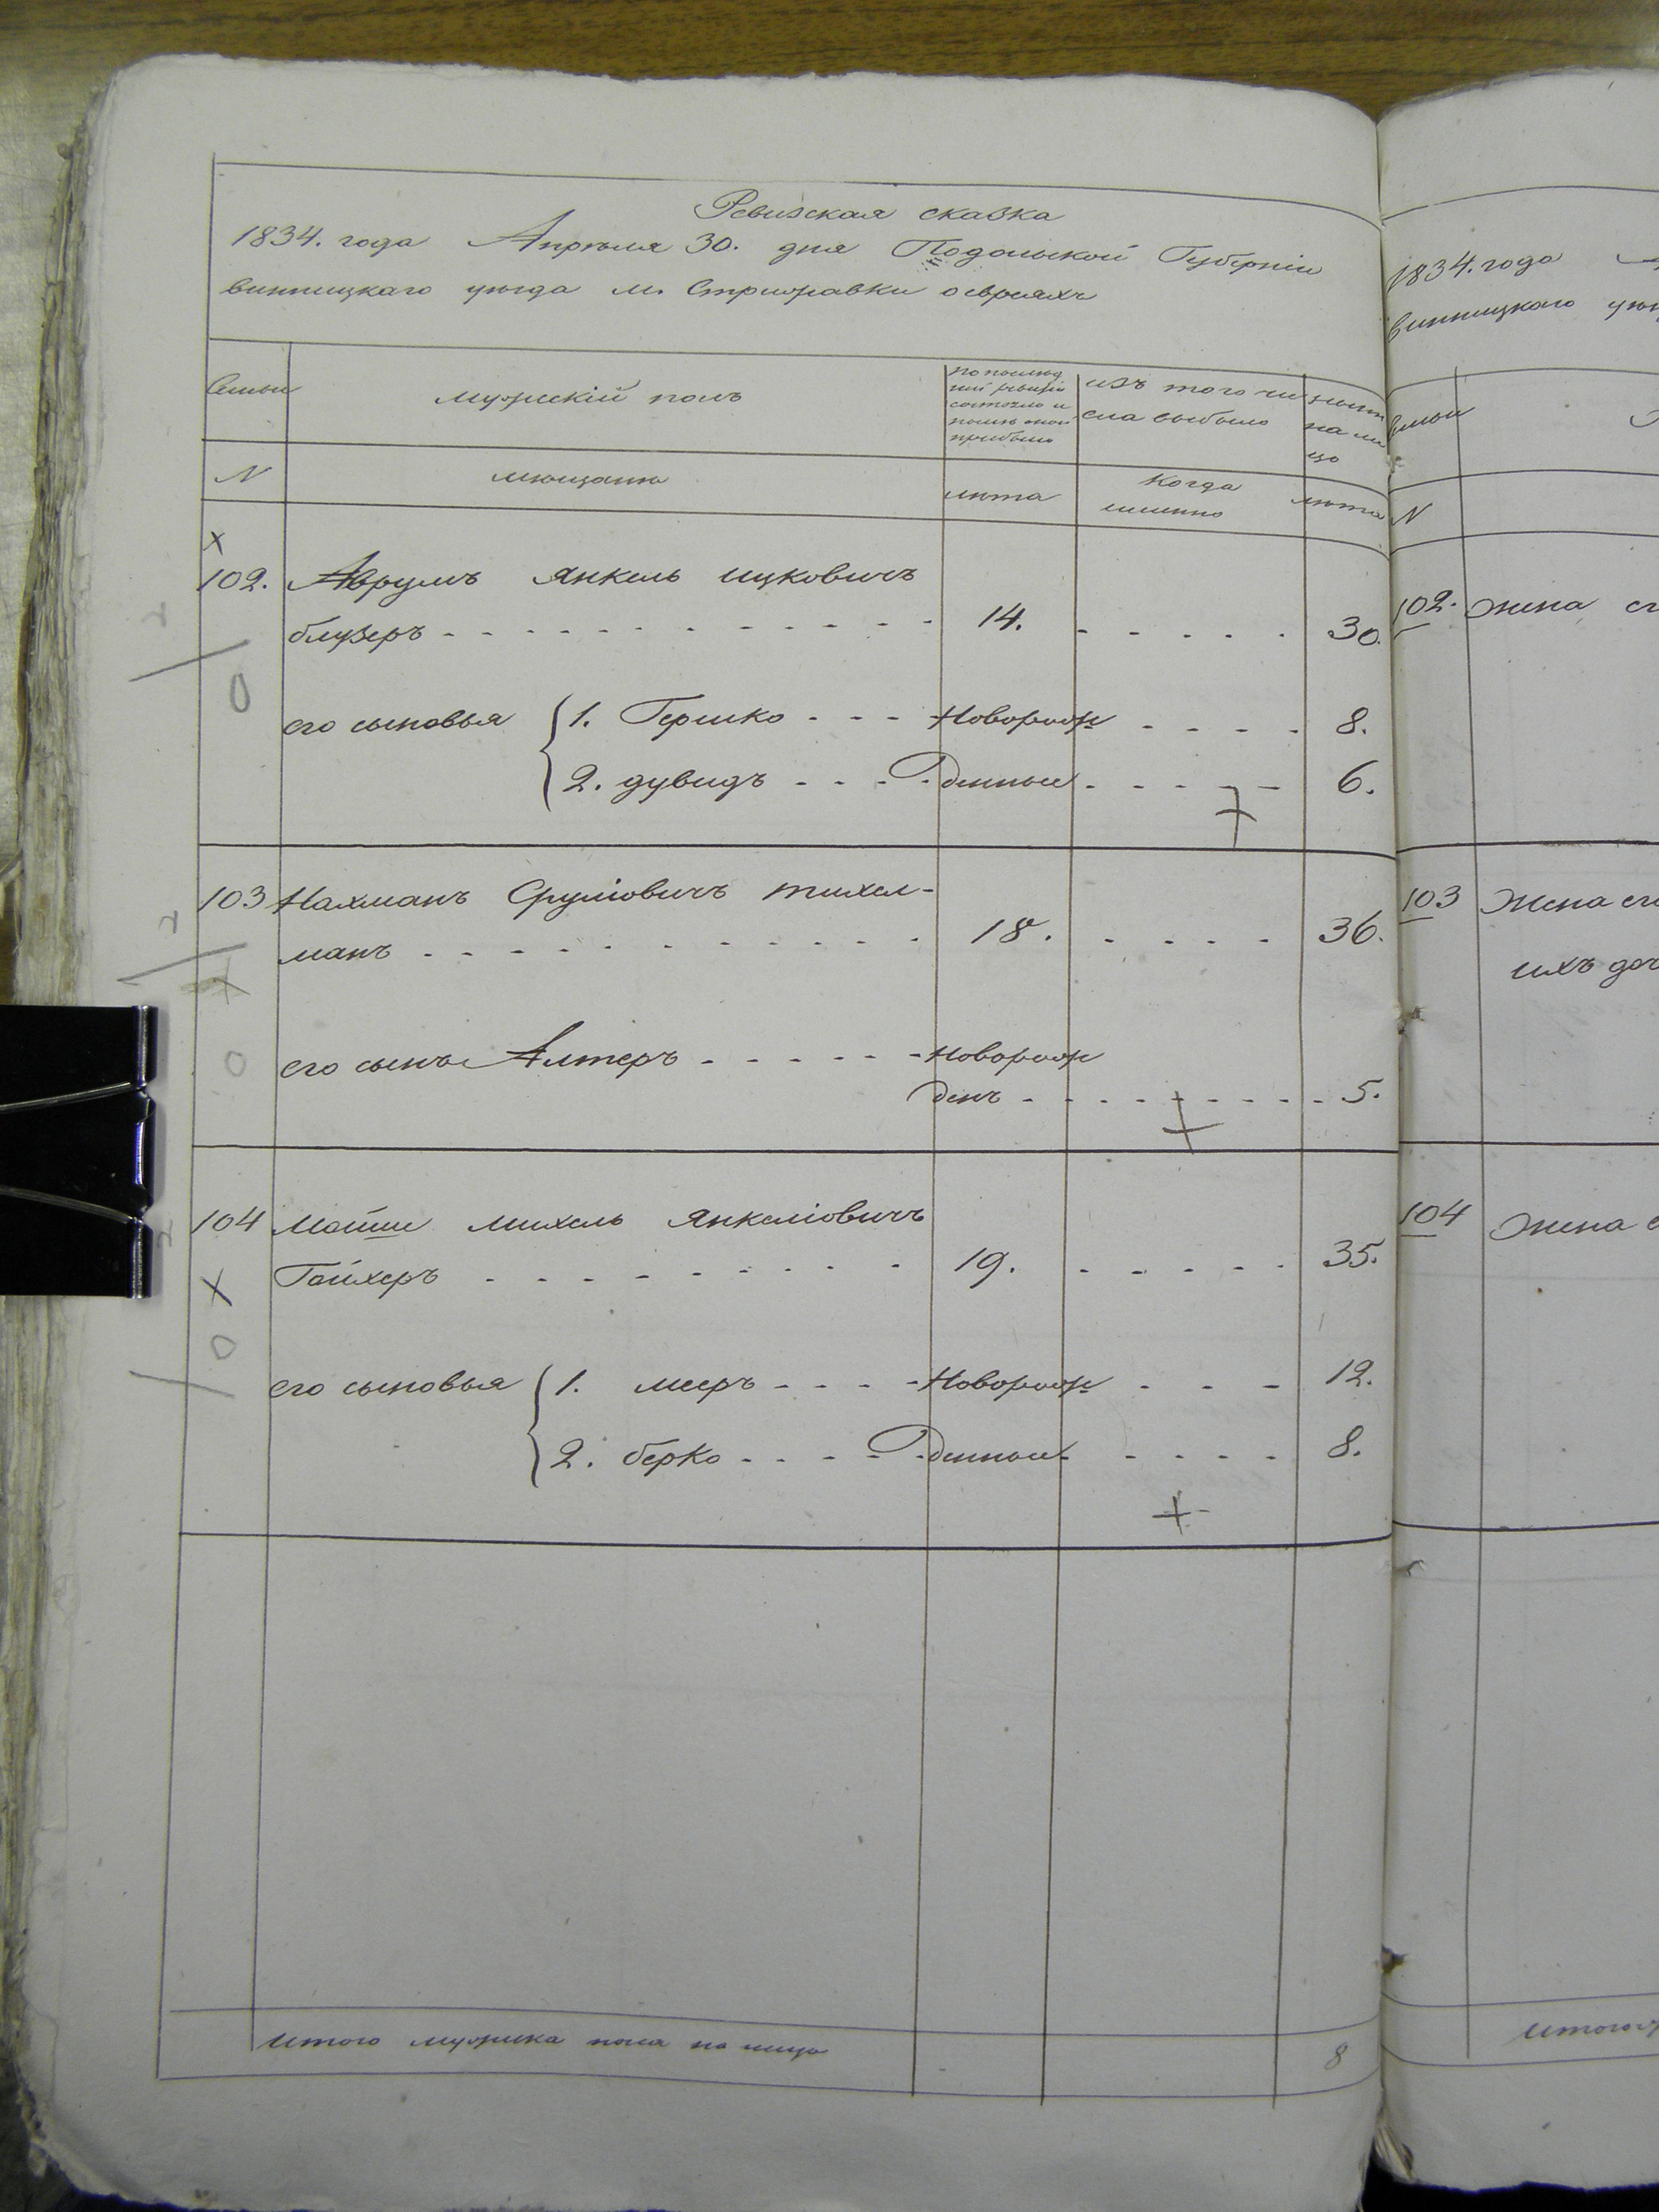 Ревизская сказка
1834. года Апреля 30. дня Подольской Губерніи
винницкаго уезда м. Стрижавки о евреяхъ
Семьи
мужескій полъ
по послед
ней ревизіи
состояло и
после оной
прибыло
изъ того чи
сла выбыло
ныне
на ли
цо
N
мещане
лета
когда
именно
лета
102. Аврумъ Янкель ицковичъ
блузеръ 14. 30.
его сыновья 1. ГершкоНоворож 8.
2. дувидъ денные 6.
103 Нахманъ Сруліовичъ тихел-
манъ 18. 36.
его сынъ Алтеръ новорож
денъ 5.
104 Мошки михель Янкеліовичъ
Гойхеръ 19. 35.
его сыновья 1. мееръ Новорож 12.
2. берко денные 8.
Итого мужика пола на лицо 8
1834. года
винницкаго
семьи
N
102. жена
103 Жена его
ихъ доч
104 жена
Итого